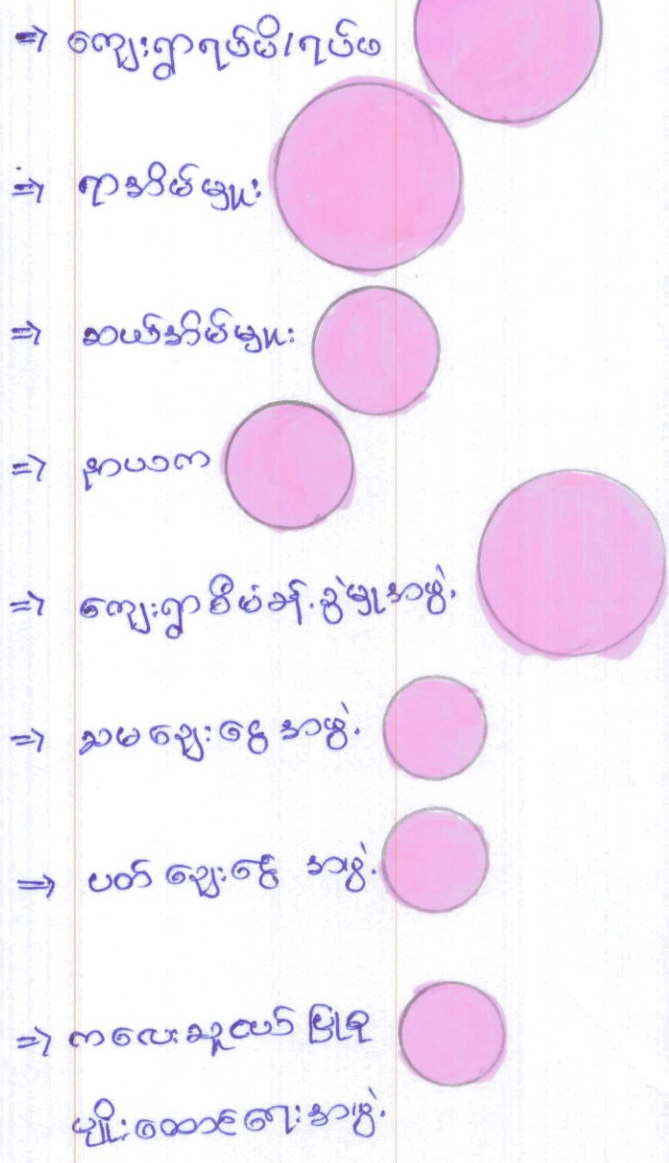 ⇒ ကျေးရွာရပ်မိ/ရပ်ဖ
⇒ ရာအိမ်မှူး
⇒ ဆယ်အိမ်မှူး
⇒ နာယက
⇒ ကျေးရွာစီမံခန့်ခွဲမှုအဖွဲ့
⇒ သမ ချေးငွေ အဖွဲ့
⇒ ပတ် ချေးငွေ အဖွဲ့
⇒ ကလေးသူငယ် ပြုစု
ပျိုးထောင်ရေးအဖွဲ့